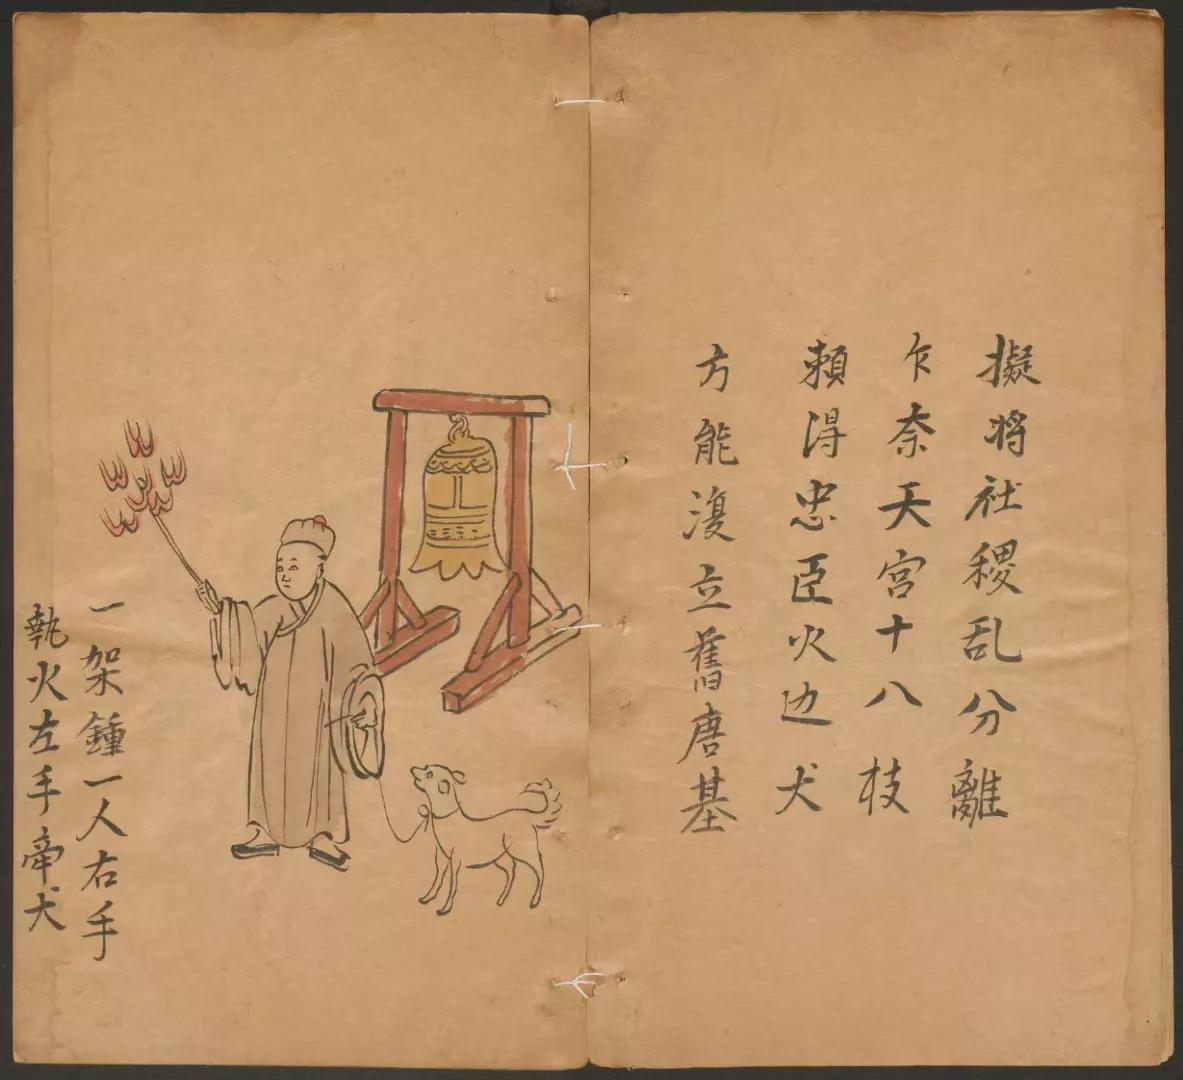 擬將社稷乱分離
乍奈天宮十八枝
賴得忠臣火边犬
方能復立舊唐基
一架鍾一人右手
執火左手牵犬